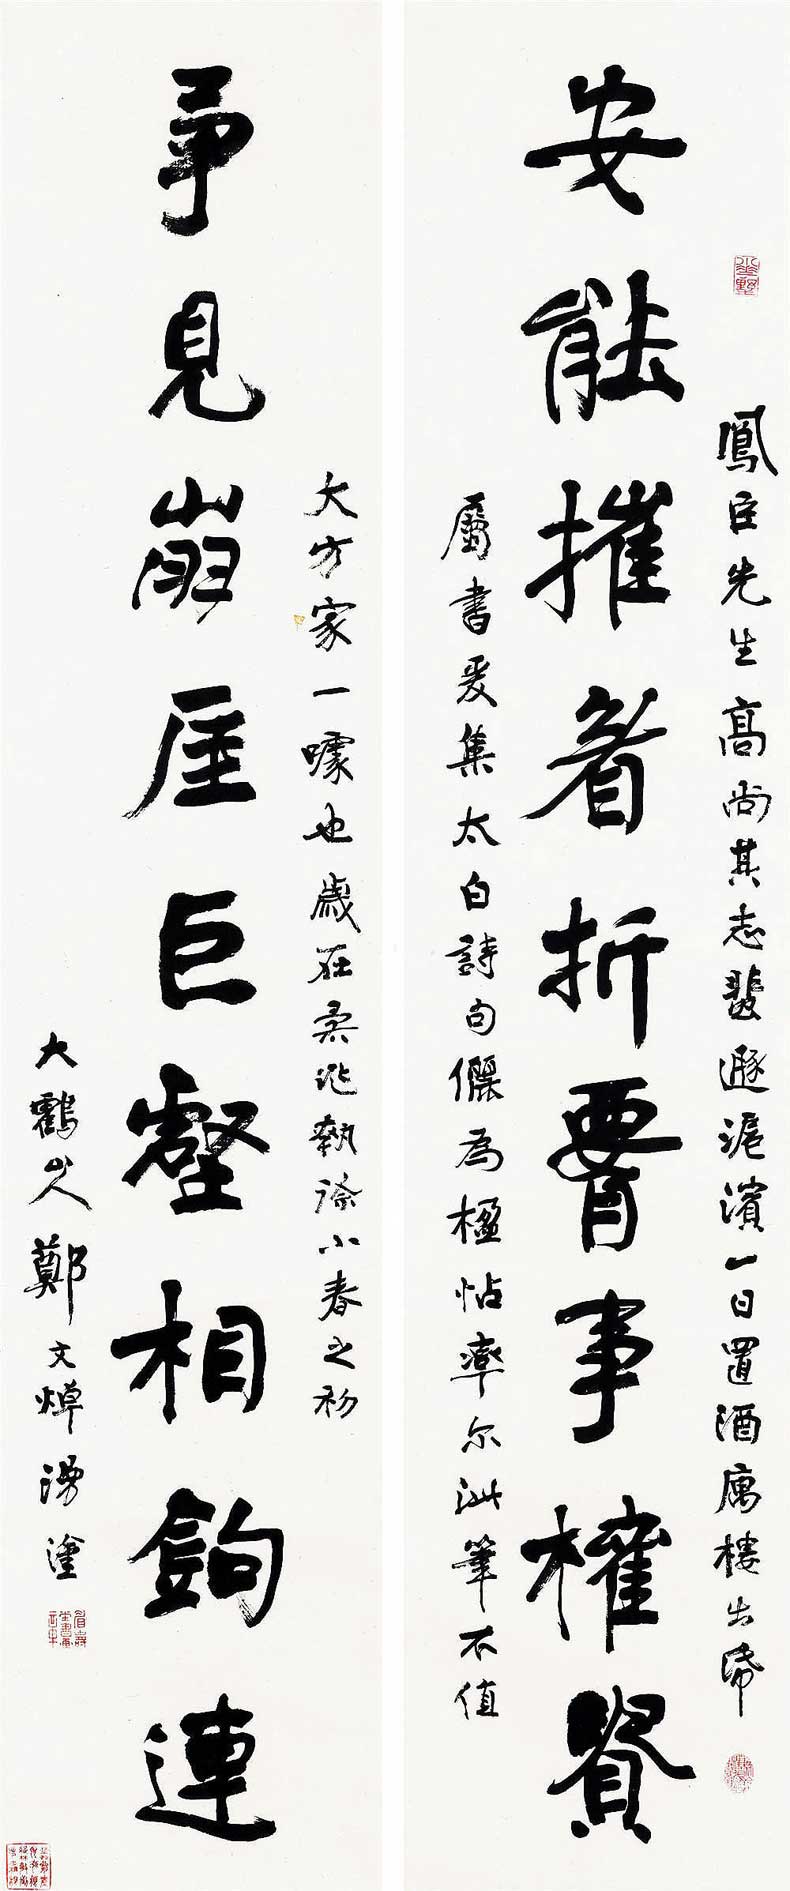 鳳臣先生高尚其志蜚遯滬濱一日置酒庽樓出帋
安能摧眉折腰事權貴
屬書爰集太白詩句儷為楹帖率尔泚筆不值
大方家一噱也歲在柔兆執徐小春之初
爭見崩厓巨壑相鉤連
大鶴山人鄭文焯漫塗